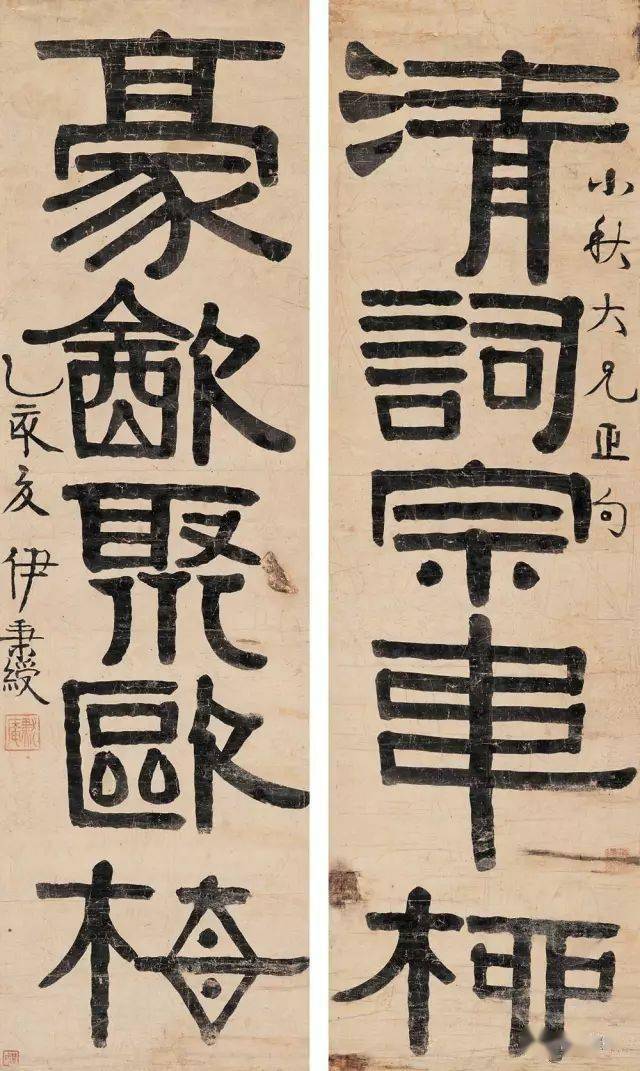 小秋大兄正句
清詞宗柳
豪㱃聚歐梅
乙亥夏 伊秉綬